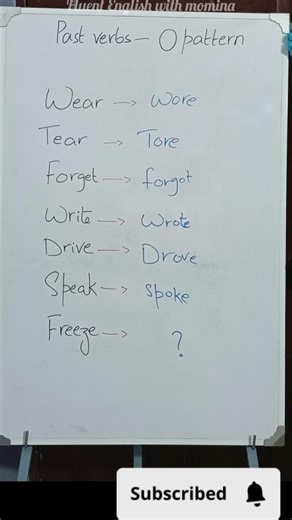 Fluent English with momina
Past verbs – O pattern
Wear –> Wore
Tear –> Tore
Forget –> forgot
Write –> Wrote
Drive –> Drove
Speak –> spoke
Freeze –> ?
Subscribed